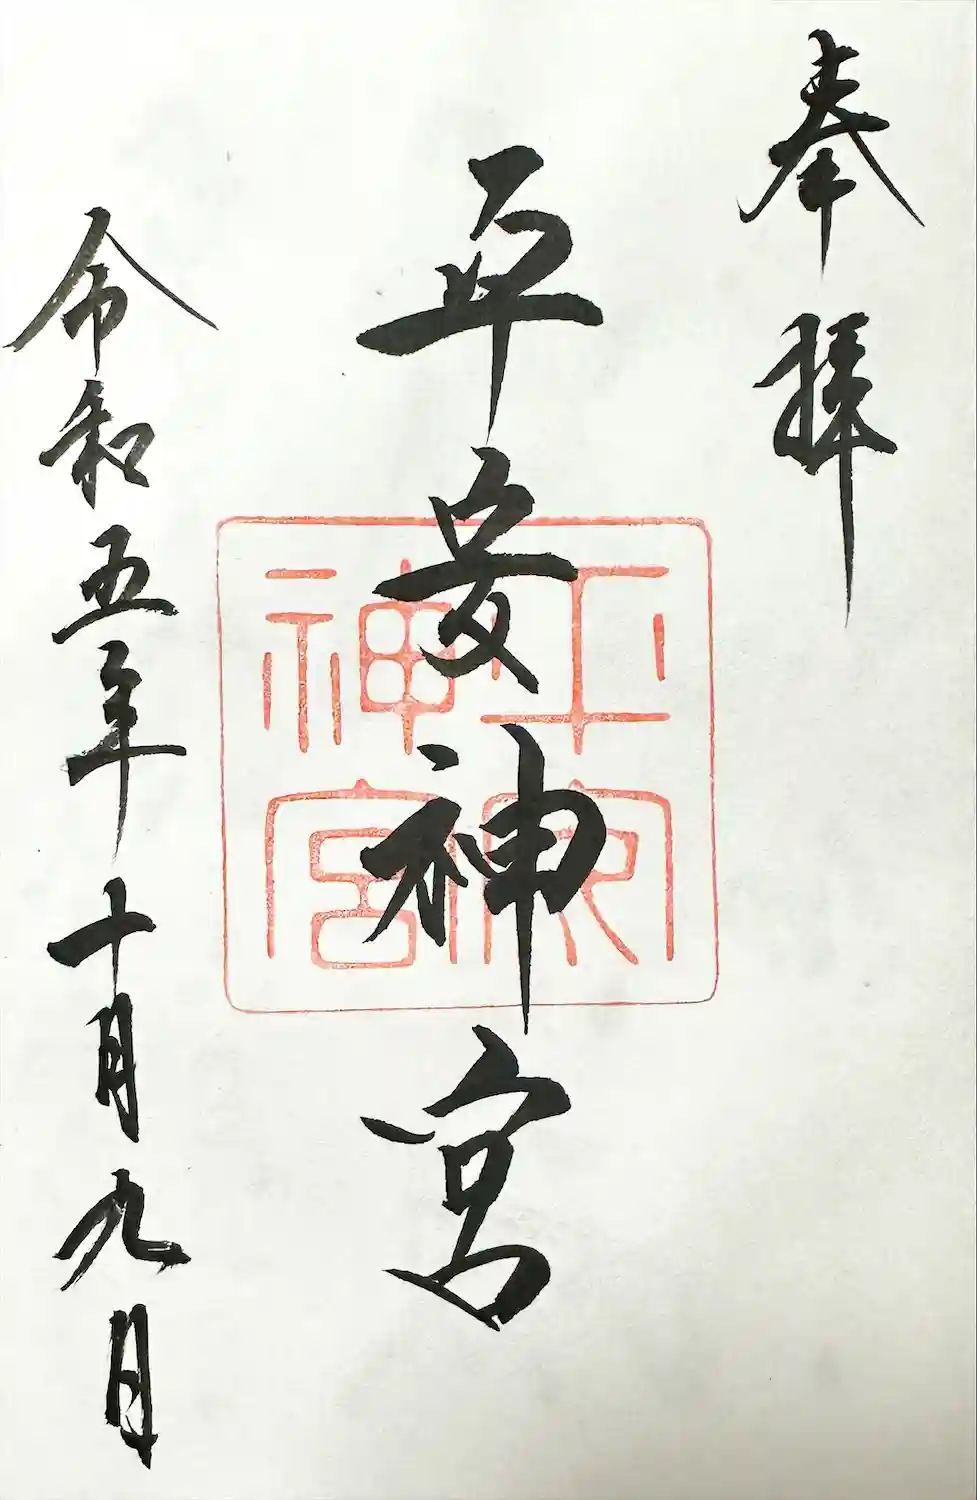 奉拝
平安神宮
平安神宮
令和五年十月九日